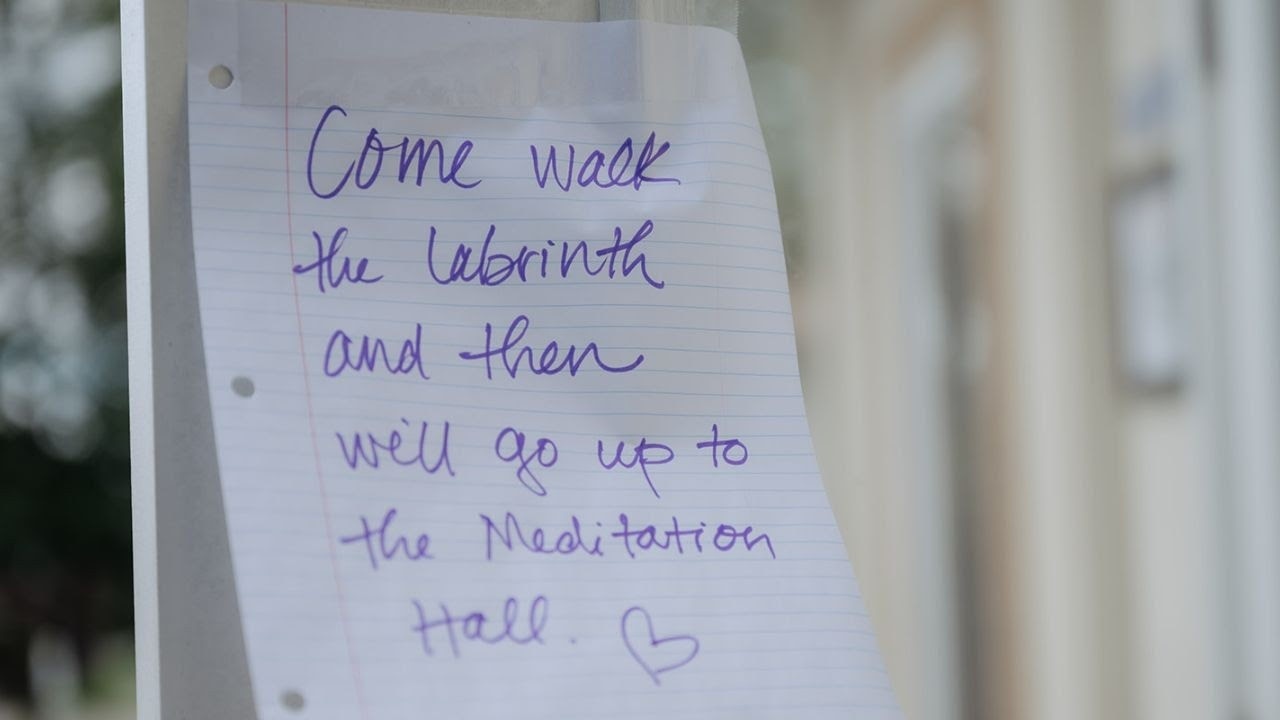 Come walk
the labrinth
and then
we'll go up to
the Meditation
Hall. ♡